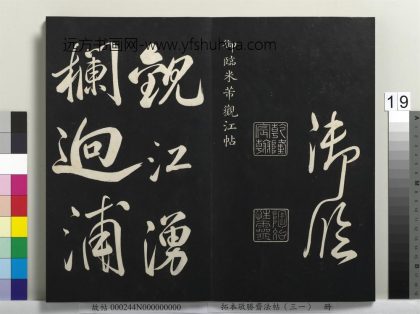 远方书画网 - www.yfshuhua.com
御臨
乾隆宸翰
御臨米芾觀江帖
觀江湧
欄迥浦
19
故帖 000244N000000000
拓本敬勝齋法帖（三一） 冊